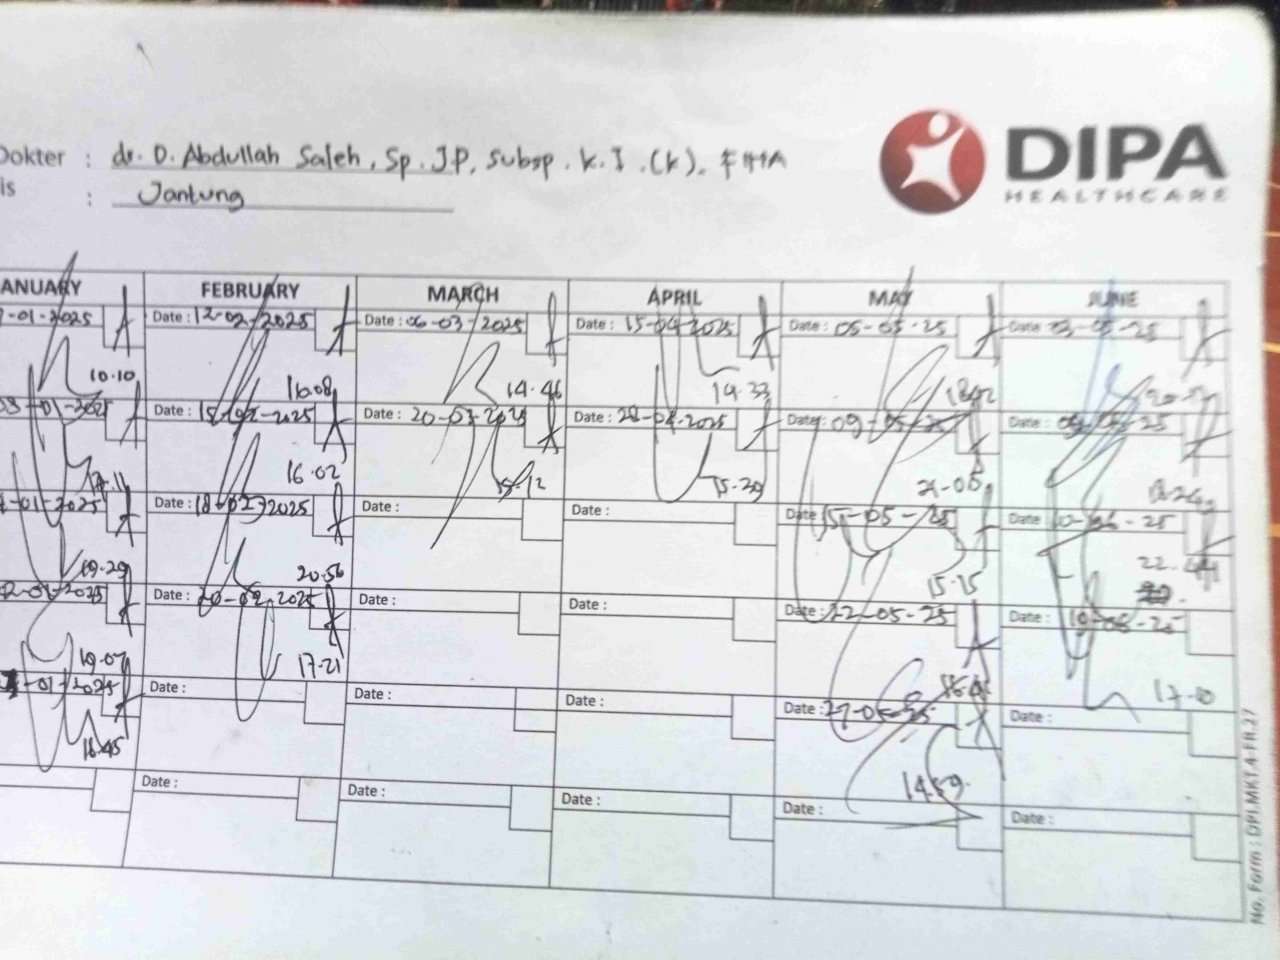 DIPA
HEALTHCARE
Dokter : dr. D. Abdullah Saleh, Sp. JP, Subsp. K.I. (K). FIHA
is : Jantung
ANUARY FEBRUARY MARCH APRIL MAY JUNE
-01-2025 Date : 12-02-2025 Date : 06-03-2025 Date : 15-04-2025 Date : 05-05-25 Date :
10.10 16.08 14.46 14.33
-01-2025 Date : Date : 20-03-2025 Date : 28-04-2025 Date : 09-05-25 Date :
16.02 15.12 15.39 21-06
-01-2025 Date : 18-02-2025 Date : Date : Date : 15-05-25 Date : 10-06-25
19.29 20.56 15.15 22.44
2-01-2025 Date : 20-02-2025 Date : Date : Date : 22-05-25 Date : 19-06-25
19.07 17-21 17-10
-01-2025 Date : Date : Date : Date : 27-05-25 Date :
18.45 14.59
Date : Date : Date : Date : Date :
No. Form : DPI.MKT.4-FR.27